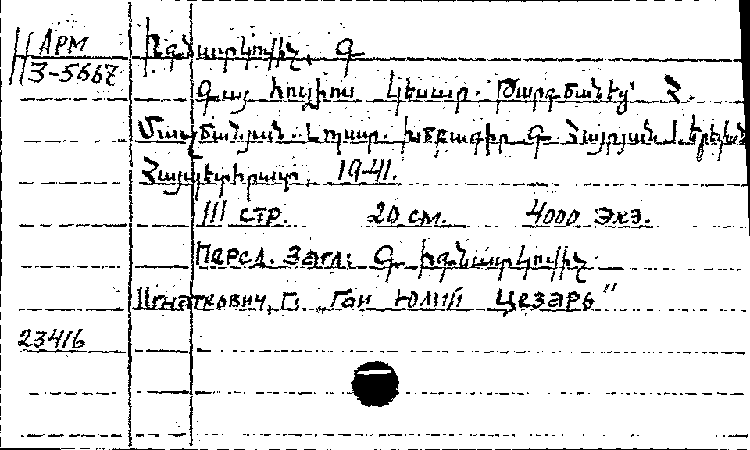 АРМ Իգնատկովիչ, Գ
3-5667
Գայ Հուլիոս Կեսար. Թարգմանեց՝ Հ.
Մազմանյան. Լոլսար. խմբագիր Գ Հայրյան. Երևան
Հայպետհրատ, 1941.
111 стр. 20 см. 4000 экз.
Парал. загл: Գ. Իգնատկովիչ
Игнаткович, Г. „Гай Юлий Цезарь"
23416